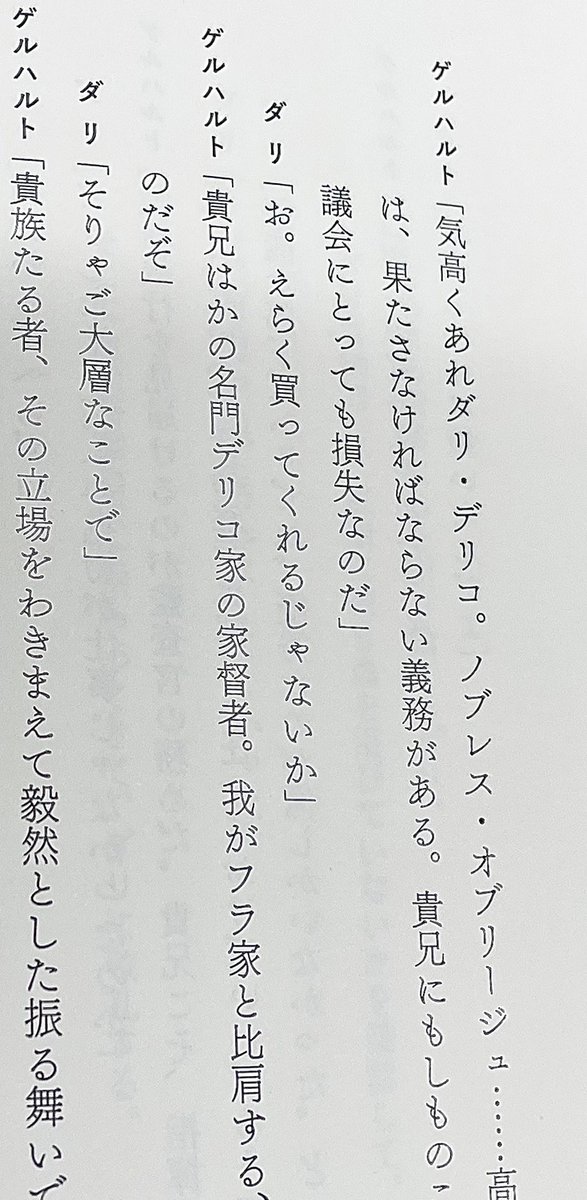 ゲルハルト「気高くあれダリ・デリコ。ノブレス・オブリージュ……高
は、果たさなければならない義務がある。貴兄にもしものこ
議会にとっても損失なのだ」
ダリ「お。えらく買ってくれるじゃないか」
ゲルハルト「貴兄はかの名門デリコ家の家督者。我がフラ家と比肩する、
のだぞ」
ダリ「そりゃご大層なことで」
ゲルハルト「貴族たる者、その立場をわきまえて毅然とした振る舞いで